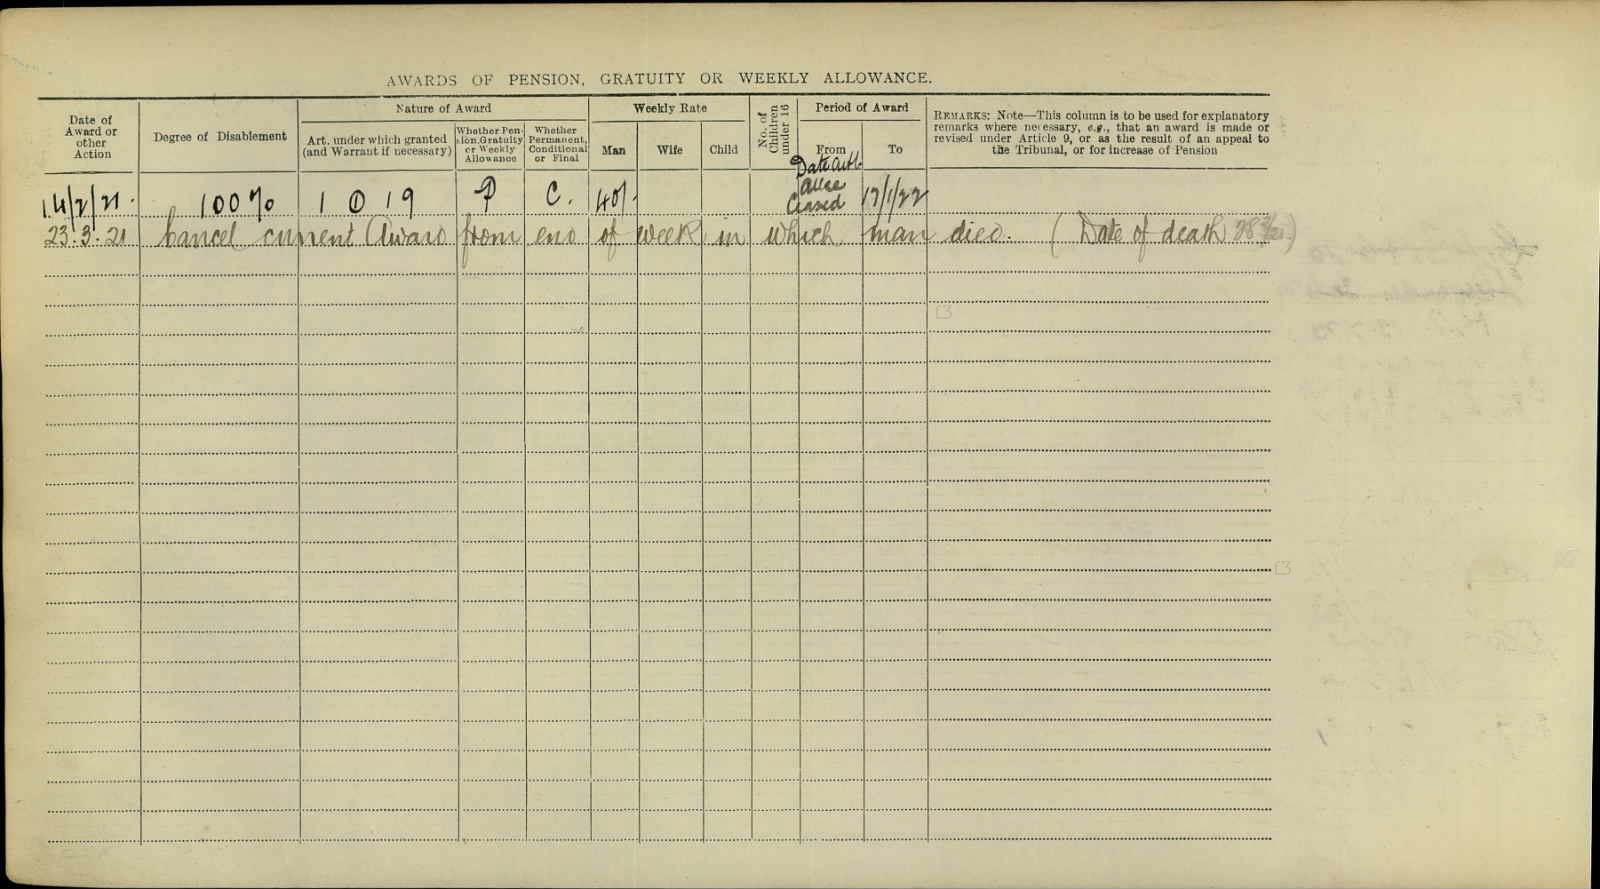 AWARDS OF PENSION, GRATUITY OR WEEKLY ALLOWANCE.
Date of Award or other Action
Degree of Disablement
Nature of Award
Art. under which granted (and Warrant if necessary)
Whether Pension, Gratuity or Weekly Allowance
Whether Permanent, Conditional or Final
Weekly Rate
Man
Wife
Child
No. of Children under 16
Period of Award
From
To
REMARKS: Note—This column is to be used for explanatory
remarks where necessary, e.g., that an award is made or
revised under Article 9, or as the result of an appeal to
the Tribunal, or for increase of Pension
14/2/21. 100% 1 O 19 P C. 40/- Date Art 1. Allce Ceased 17/1/22
23.3.21 Cancel current Award from end of week in which man died. (Date of death